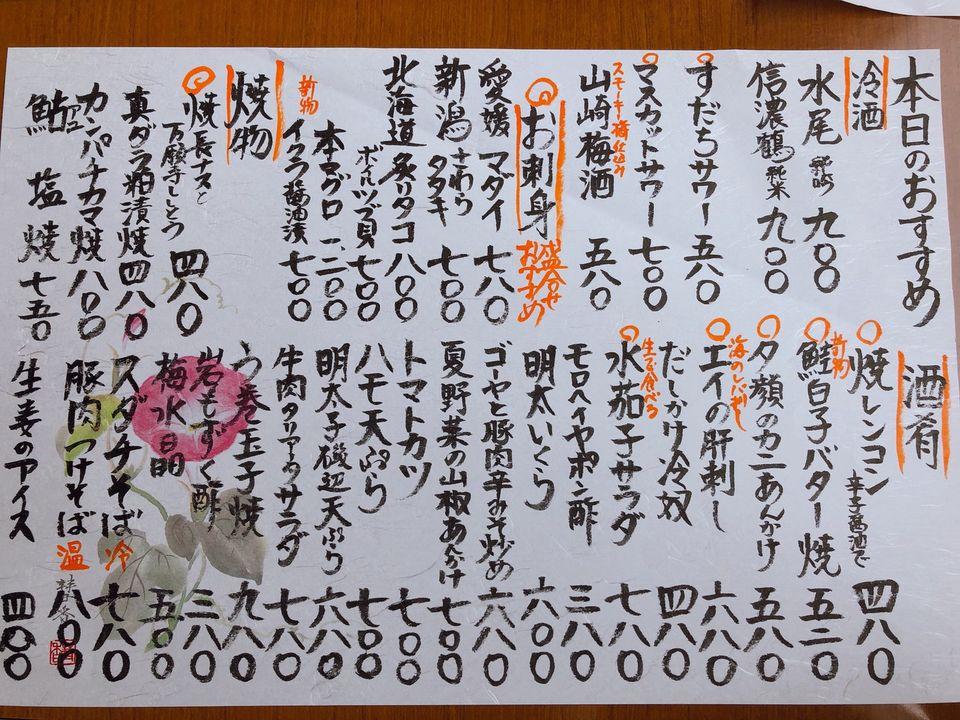 本日のおすすめ
冷酒
水尾 純吟 九〇〇
信濃鶴 純米 九〇〇
すだちサワー 五八〇
マスカットサワー 七〇〇
山崎梅酒 五八〇
スモーキー樽仕込み
お刺身
盛合せ
おすすめ
愛媛 マダイ 七八〇
新潟 さわらタタキ 七〇〇
北海道 炙りタコ 八〇〇
ボイルツブ貝 七〇〇
本マグロ 一、二〇〇
新物
イクラ醤油漬 七〇〇
焼物
焼長ナスと
万願寺しとう 四八〇
真ダラ粕漬焼 四八〇
カンパチカマ焼 八〇〇
鮎塩焼 七五〇
酒肴
焼レンコン 辛子醤油で 四八〇
新物
鮭白子バター焼 五二〇
夕顔のカニあんかけ 五八〇
エイの肝刺し 六八〇
海のレバ刺し
だしかけ冷奴 四八〇
水茄子サラダ 七八〇
生で食べる
モロヘイヤポン酢 三八〇
明太いくら 六〇〇
ゴーヤと豚肉辛みそ炒め 六八〇
夏野菜の山椒あんかけ 七〇〇
トマトカツ 七〇〇
ハモ天ぷら 七〇〇
明太子磯辺天ぷら 六八〇
牛肉タリアータサラダ 七八〇
う巻き玉子焼 九八〇
岩もずく酢 三八〇
梅水晶 五〇〇
スダチそば 冷 七八〇
豚肉つけそば 温 八〇〇
生姜のアイス 四〇〇